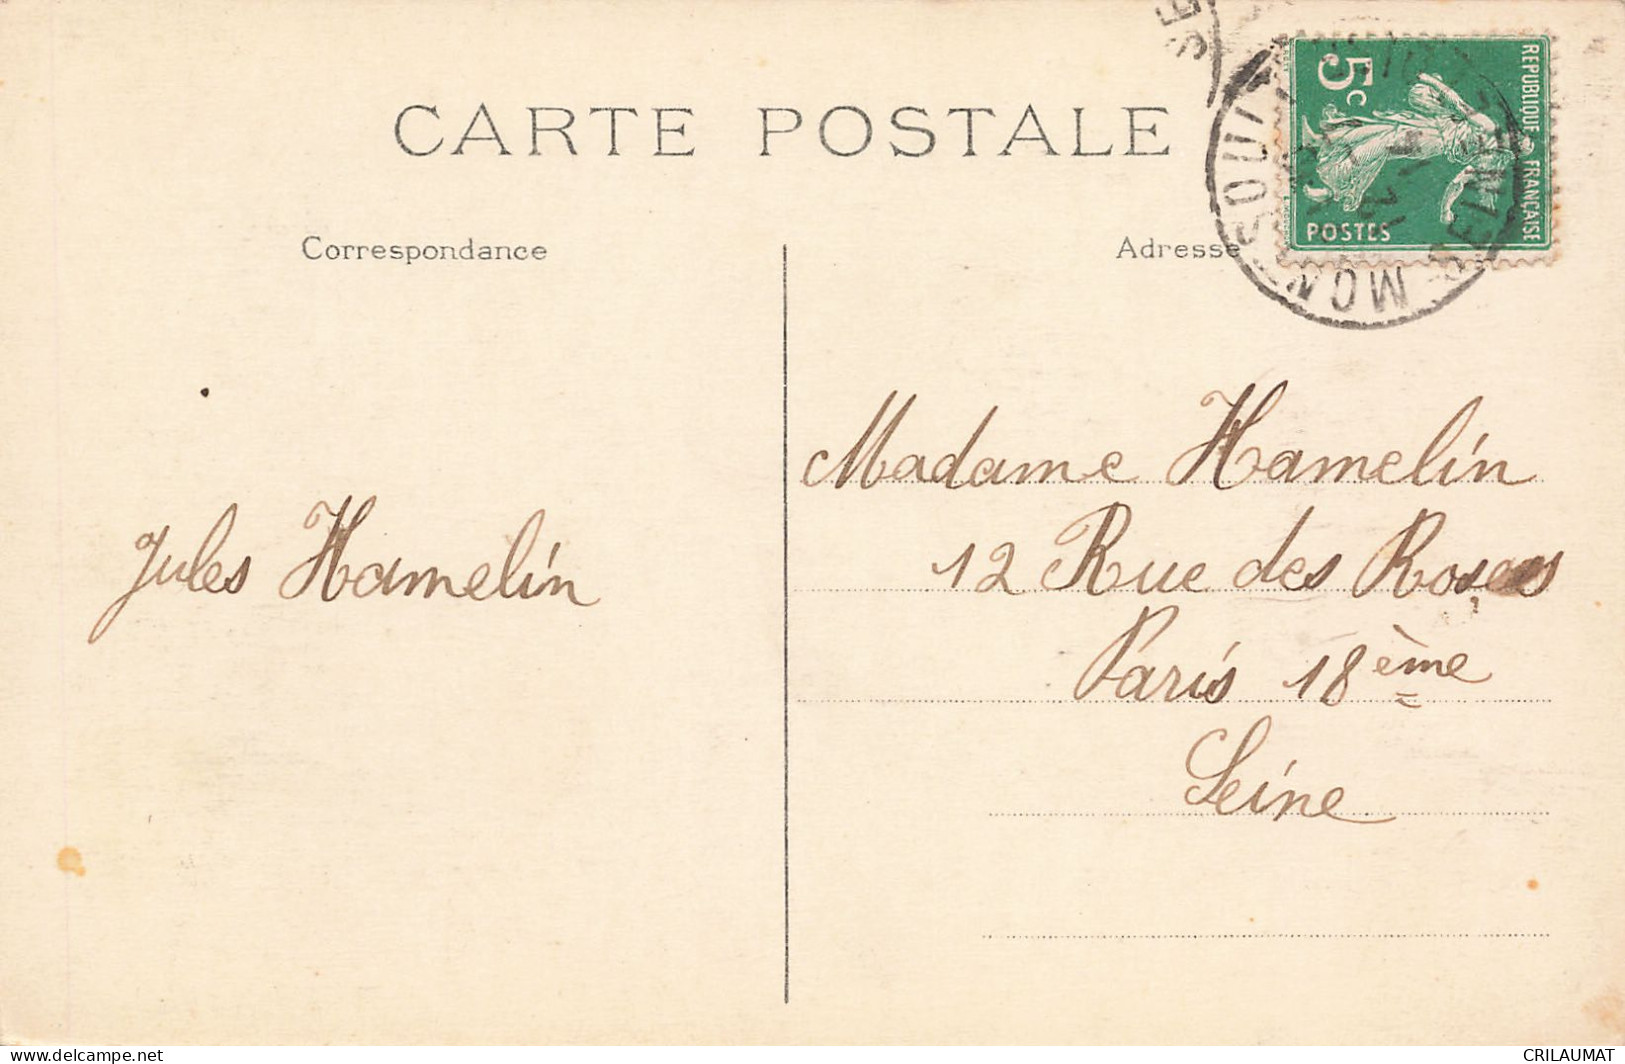 CARTE POSTALE
Correspondance
Adresse
REPUBLIQUE FRANÇAISE
5c
POSTES
Madame Hamelin
12 Rue des Roses
Paris 18ème
Seine
Jules Hamelin
delcampe.net
CRILAUMAT